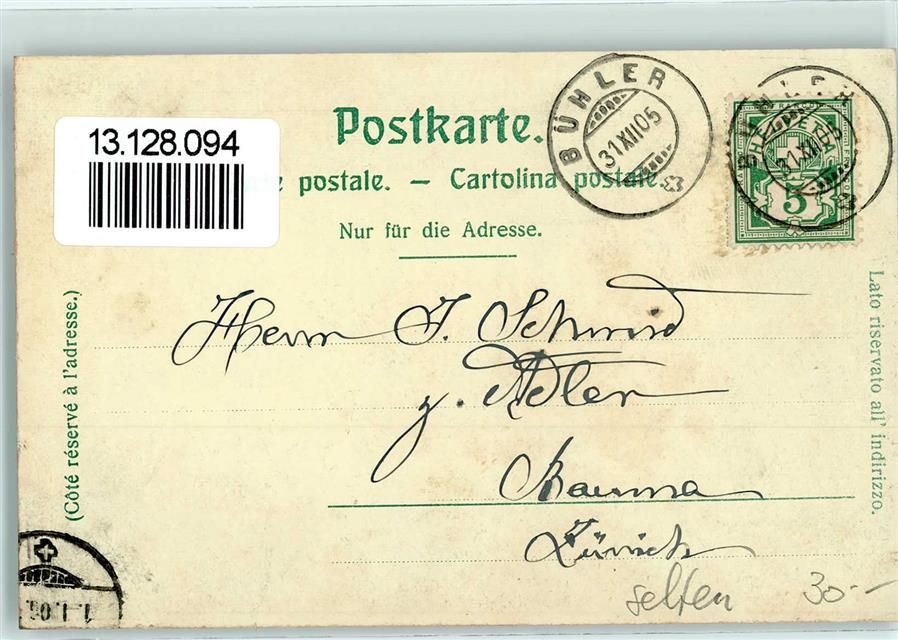 13.128.094
Postkarte.
e postale. — Cartolina postale.
Nur für die Adresse.
BÜHLER
31 XII 05
BÜHLER
31 XII
HELVETIA
5
(Côté réservé à l'adresse.)
Lato riservato all' indirizzo.
Herrn J. Schmid
z. Adler
Bauma
Zürich
1.I.06
selten 30.-